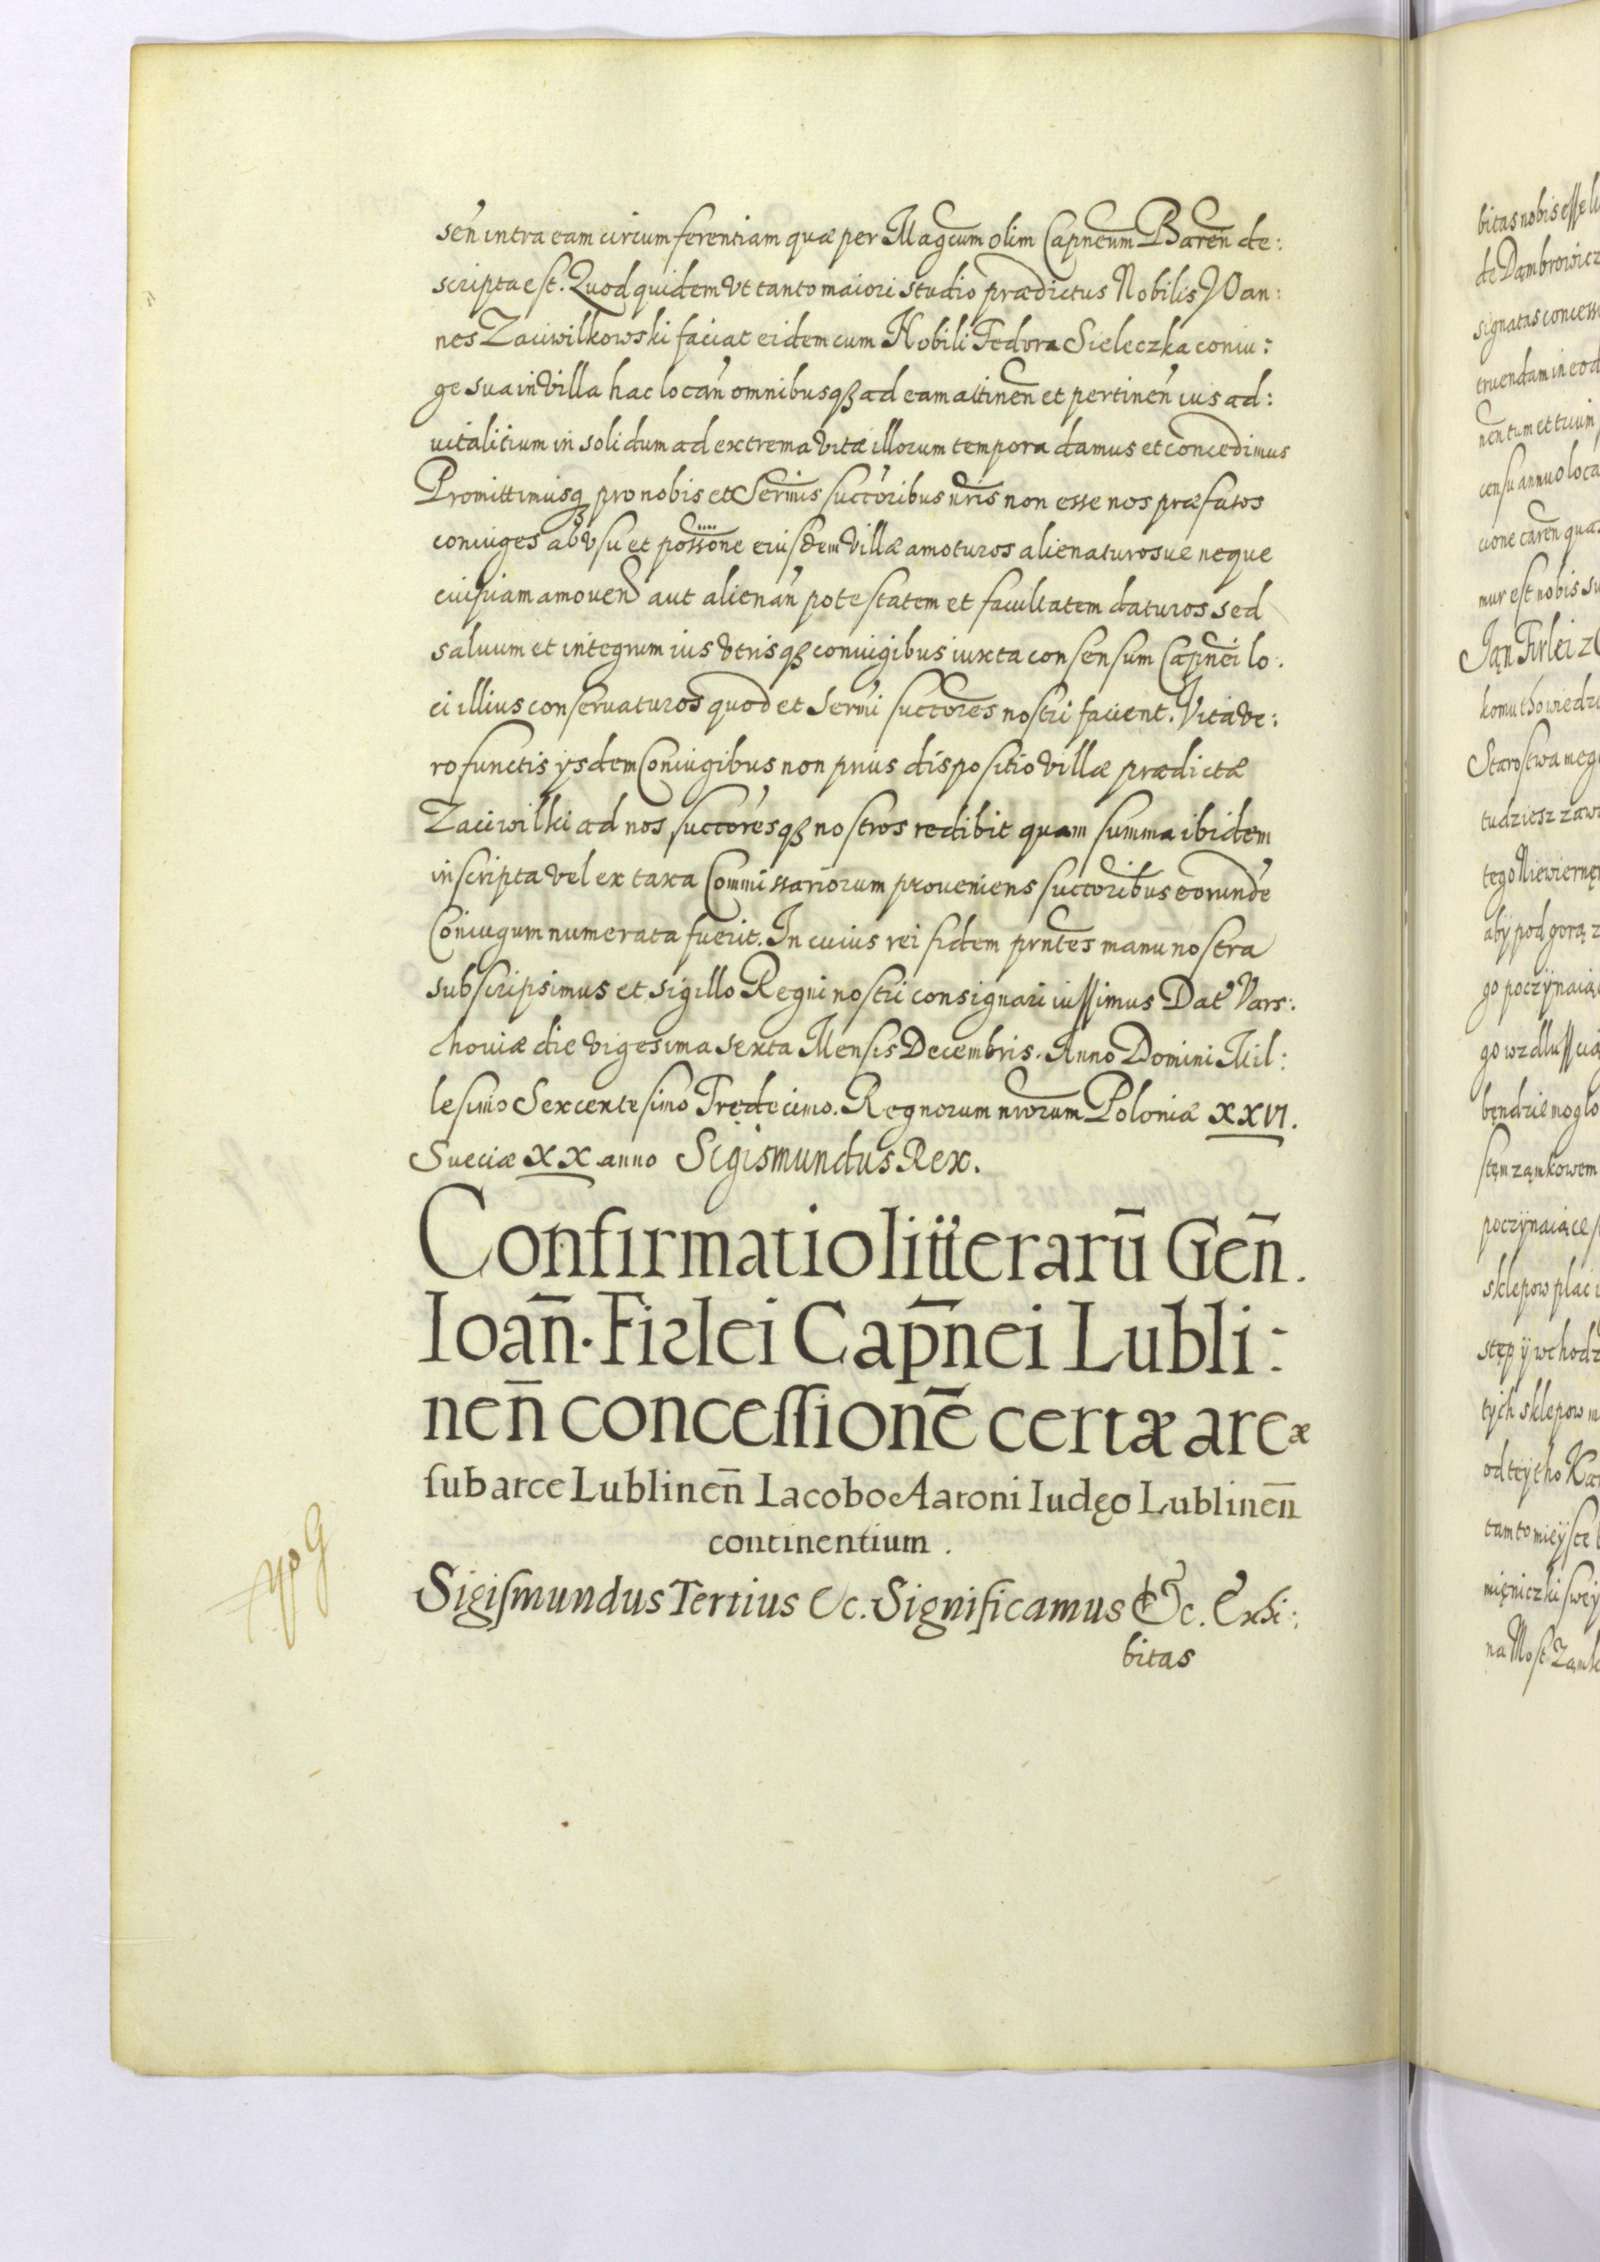 sen̄ intra eam circumferentiam quæ per Magcum olim Capneum Baren̄ de:
scripta est. Quod quidem vt tanto maiori studio prædictus Nobilis Ioan:
nes Zaciwilkowski faciat eidem cum Nobili Fedora Sieleczka coniu:
ge sua in villa hac locan̄ omnibusqȝ ad eam attinen̄ et pertinen̄ ius ad:
uitalitium in solidum ad extrema vitæ illorum tempora damus et concedimus
Promittimusqȝ pro nobis et Sermis succoribus nris non esse nos præfatos
coniuges ab vsu et possone eiusdem villæ amoturos alienaturosue neque
cuipiam amouen̄ aut alienan̄ potestatem et facultatem daturos sed
saluum et integrum ius vtrisqȝ coniugibus iuxta consensum Capnei lo:
ci illius conseruaturos quod et Sermi succores nostri facient. Vita ve:
ro functis ysdem Coniugibus non prius dispositio villæ prædictæ
Zaciwilki ad nos succoresqȝ nostros redibit quam summa ibidem
inscripta vel ex taxa Commissariorum proueniens succoribus eorundē
Coniugum numerata fuerit. In cuius rei fidem prntes manu nostra
subscripsimus et sigillo Regni nostri consignari iussimus Dat Vars:
chouiæ die vigesima sexta Mensis Decembris. Anno Domini Mil:
lesimo Sexcentesimo Tredecimo. Regnorum nrorum Poloniæ XXVI.
Sueciæ XX anno Sigismundus Rex.
Confirmatio litterarū Gen̄.
Ioan̄. Firlei Capn̄ei Lubli:
nen̄ concessionē certæ areæ
sub arce Lublinen̄ Iacobo Aaroni Iudęo Lublinen̄
continentium.
Sigismundus Tertius &c. Significamus &c. Exhi:
bitas
bitas nobis esse
de Dąmbrowicz
signatas concess
truendam in eod
censu annuo loca
cione caren̄ qua
mur est nobis su
Jąn Firlei z
komu tho wiedzi
Starostwa meg
tudziesz zaw
tego Niewierneg
aby pod gorą z
go poczÿnaiąc
go wzdlusz
bęndzie mogło
stęm ząmkowem
poczÿnaiące
sklepow plac
stęp ÿ wchodz
tych sklepow
od teÿ tho
tam to mieÿsce
na Most Ząmk